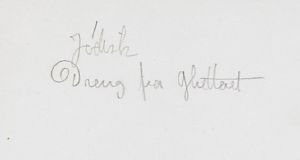 Jødisk
Dreng fra Ghettoet